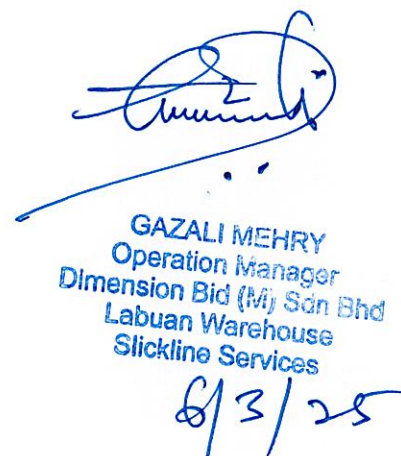 GAZALI MEHRY
Operation Manager
Dimension Bid (M) Sdn Bhd
Labuan Warehouse
Slickline Services
6/3/25